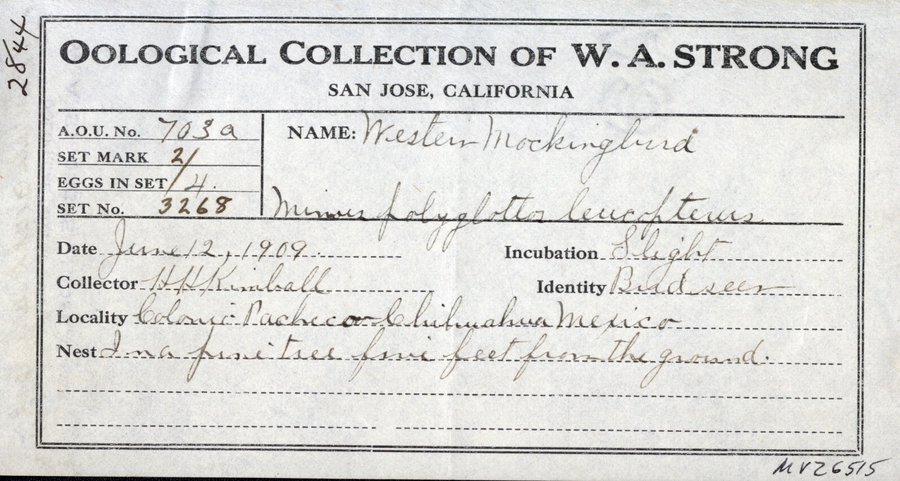 2844
OOLOGICAL COLLECTION OF W. A. STRONG
SAN JOSE, CALIFORNIA
A.O.U. No. 703a
NAME: Western Mockingbird
SET MARK 2/
EGGS IN SET /4.
SET No. 3268
Mimus polyglottos leucopterus
Date June 12, 1909.
Incubation Slight
Collector H H Kimball
Identity Bird seen
Locality Colonia Pacheco Chihuahua Mexico
Nest In a pine tree five feet from the ground.
MVZ6515